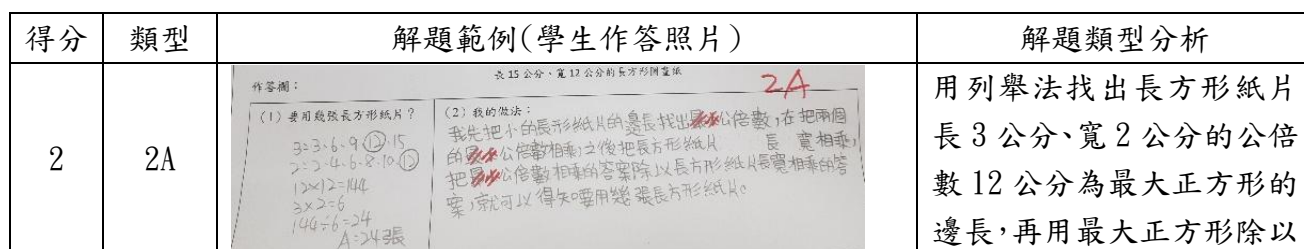 得分 類型 解題範例(學生作答照片) 解題類型分析
2 2A
長 15 公分、寬 12 公分的長方形圖畫紙
作答欄：
2A
(1) 要用幾張長方形紙片？
3=3.6.9.12.15
2=2.4.6.8.10.12
12×12=144
3×2=6
144÷6=24
A=24張
(2) 我的做法：
我先把小的長方形紙片的邊長找出公倍數,在把兩個
的公倍數相乘,之後把長方形紙片 長 寬相乘,
把公倍數相乘的答案除以長方形紙片長寬相乘的答
案,就可以得知要用幾張長方形紙片。
用列舉法找出長方形紙片
長 3 公分、寬 2 公分的公倍
數 12 公分為最大正方形的
邊長,再用最大正方形除以